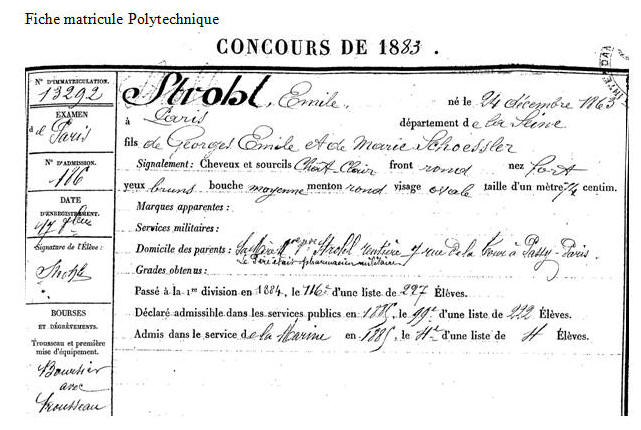 Fiche matricule Polytechnique
CONCOURS DE 1883.
N° D'IMMATRICULATION.
13292
EXAMEN
d de Paris
N° D'ADMISSION.
186
DATE
D'ENREGISTREMENT.
Signature de l'Élève :
Strohl
BOURSES
ET DÉGRÈVEMENTS.
Trousseau et première
mise d'équipement.
Boursier
avec
trousseau
Strohl, Emile, né le 24 décembre 1863
à Paris département de la Seine
fils de Georges Emile et de Marie Schoessler
Signalement: Cheveux et sourcils Chat. Clair front rond nez fort
yeux bruns bouche moyenne menton rond visage ovale taille d'un mètre 74 centim.
Marques apparentes :
Services militaires :
Domicile des parents : Sa Mère Strohl rentière 7 rue de la Tour à Passy-Paris.
Le Père était pharmacien militaire
Grades obtenus :
Passé à la 1re division en 1884, le 116e d'une liste de 227 Élèves.
Déclaré admissible dans les services publics en 1885, le 99e d'une liste de 222 Élèves.
Admis dans le service de la Marine en 1885, le 4e d'une liste de 4 Élèves.